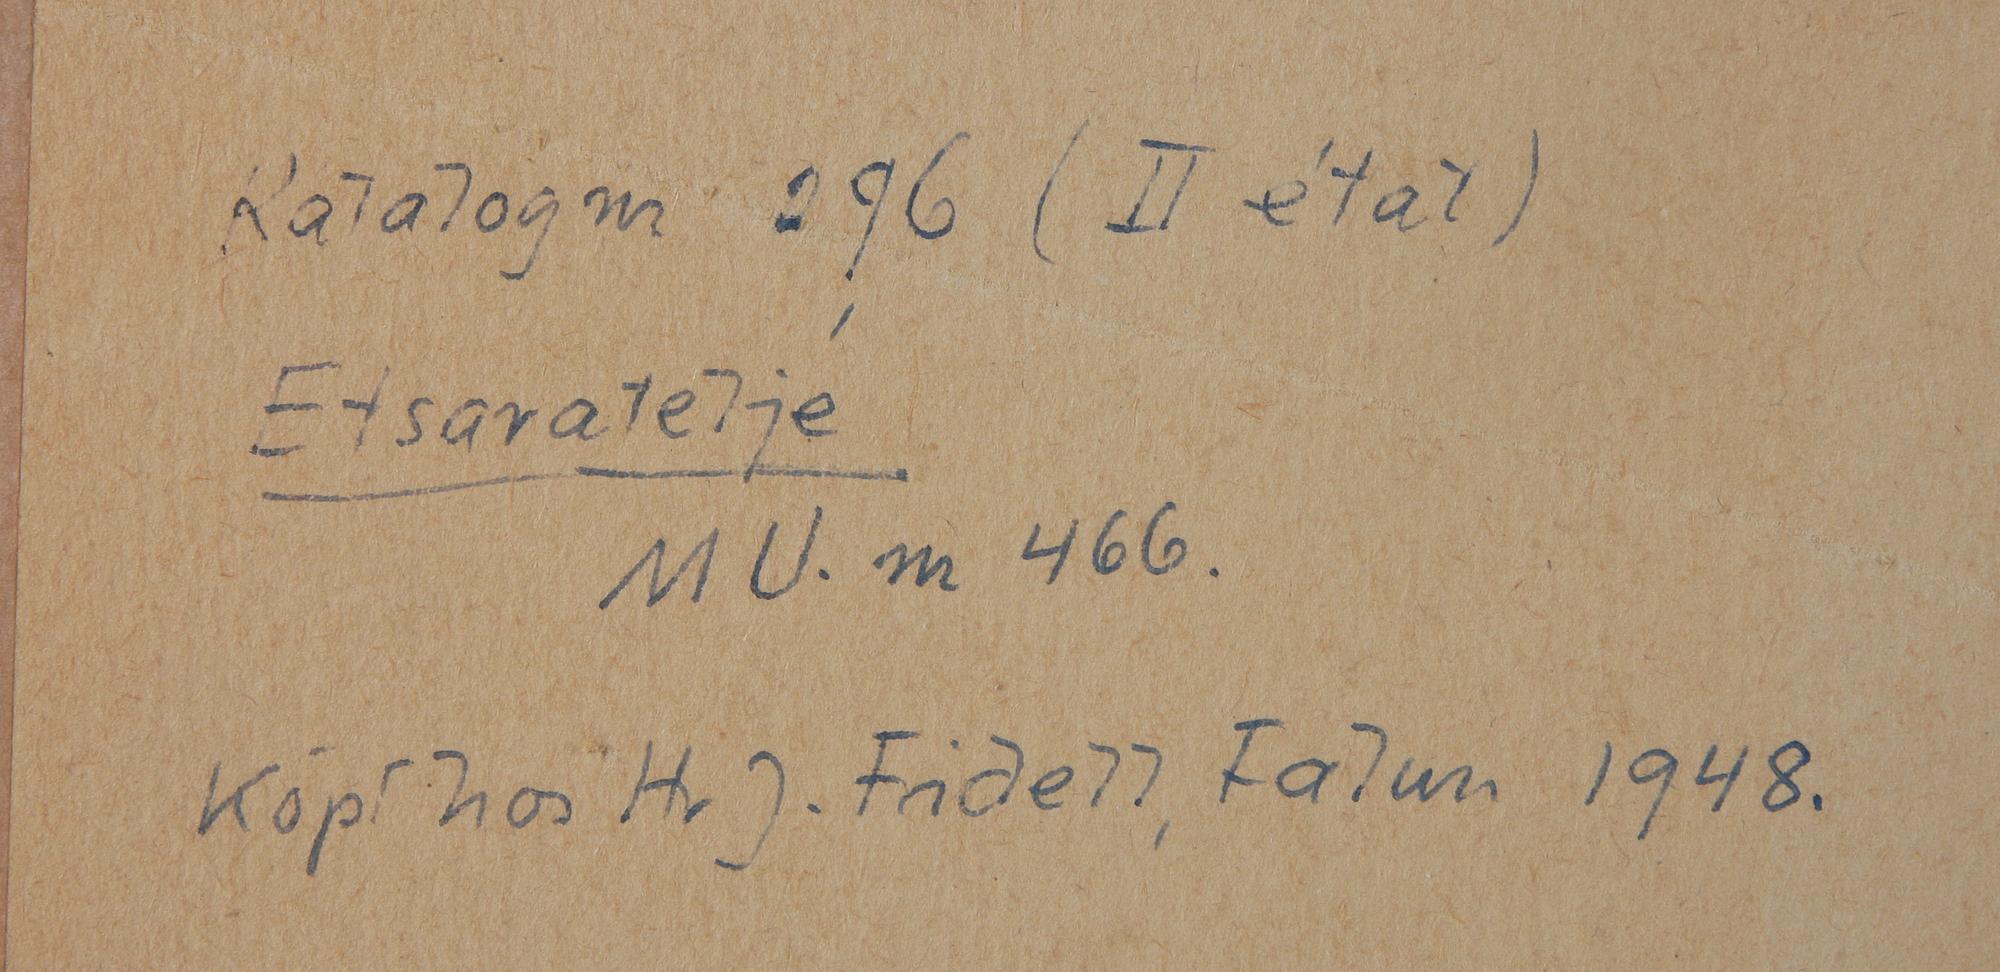 Katalog nr 296 (II état)
Etsarateljé
MU. nr 466.
Köpt hos Hr J. Fridell, Falun 1948.